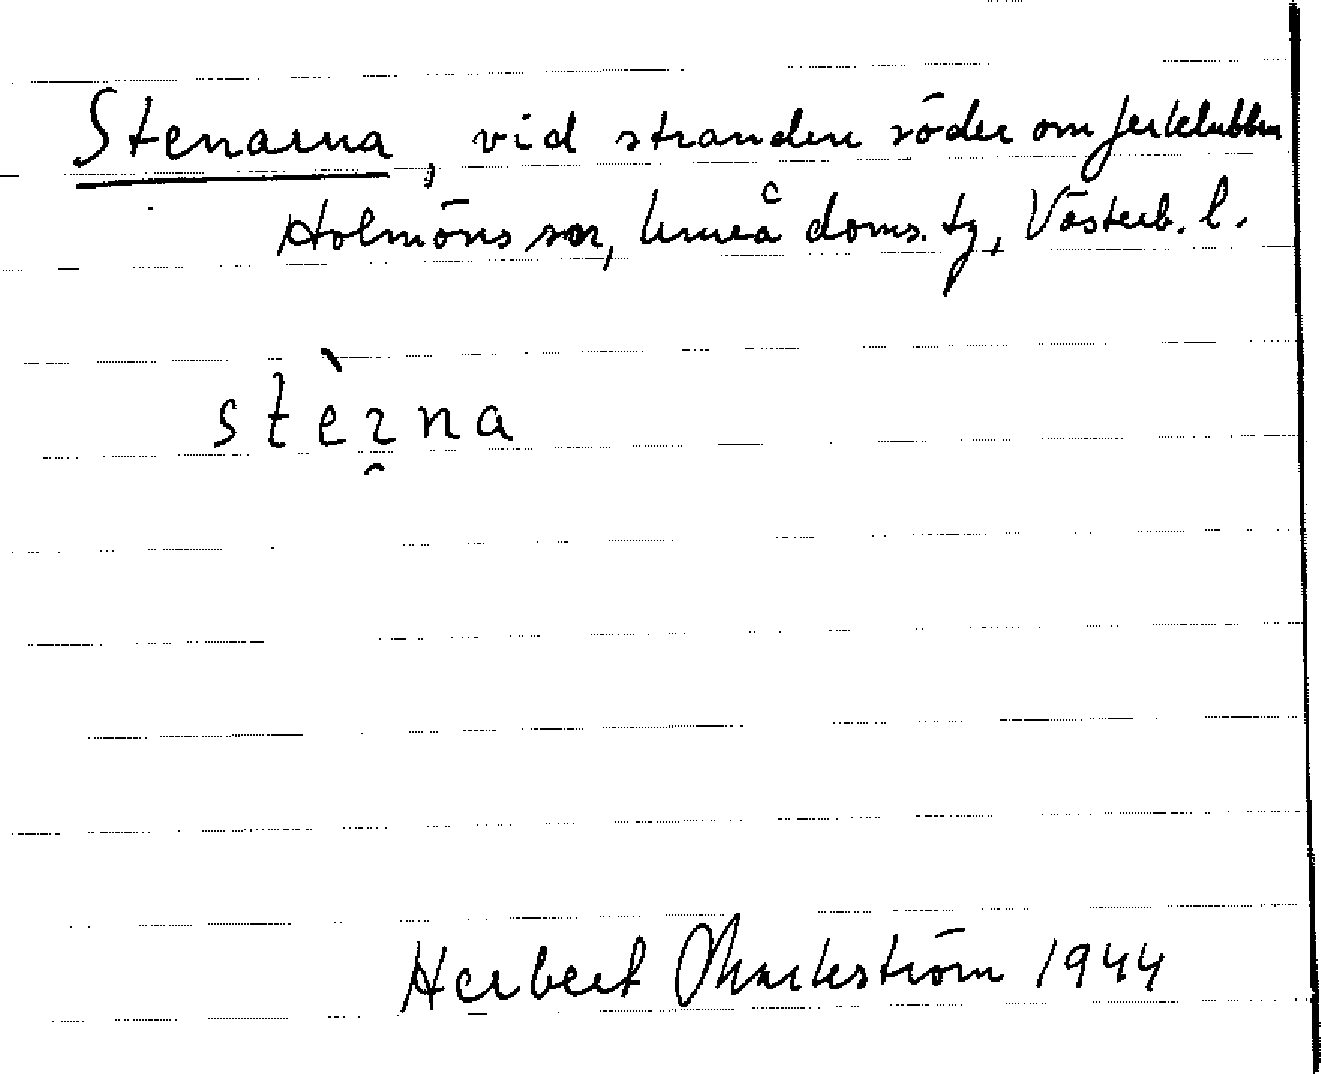 Stenarna, vid stranden söder om Jerklubben
Holmöns sn, Umeå doms. tg, Västerb. l.
stèꝛna
Herbert Markström 1944